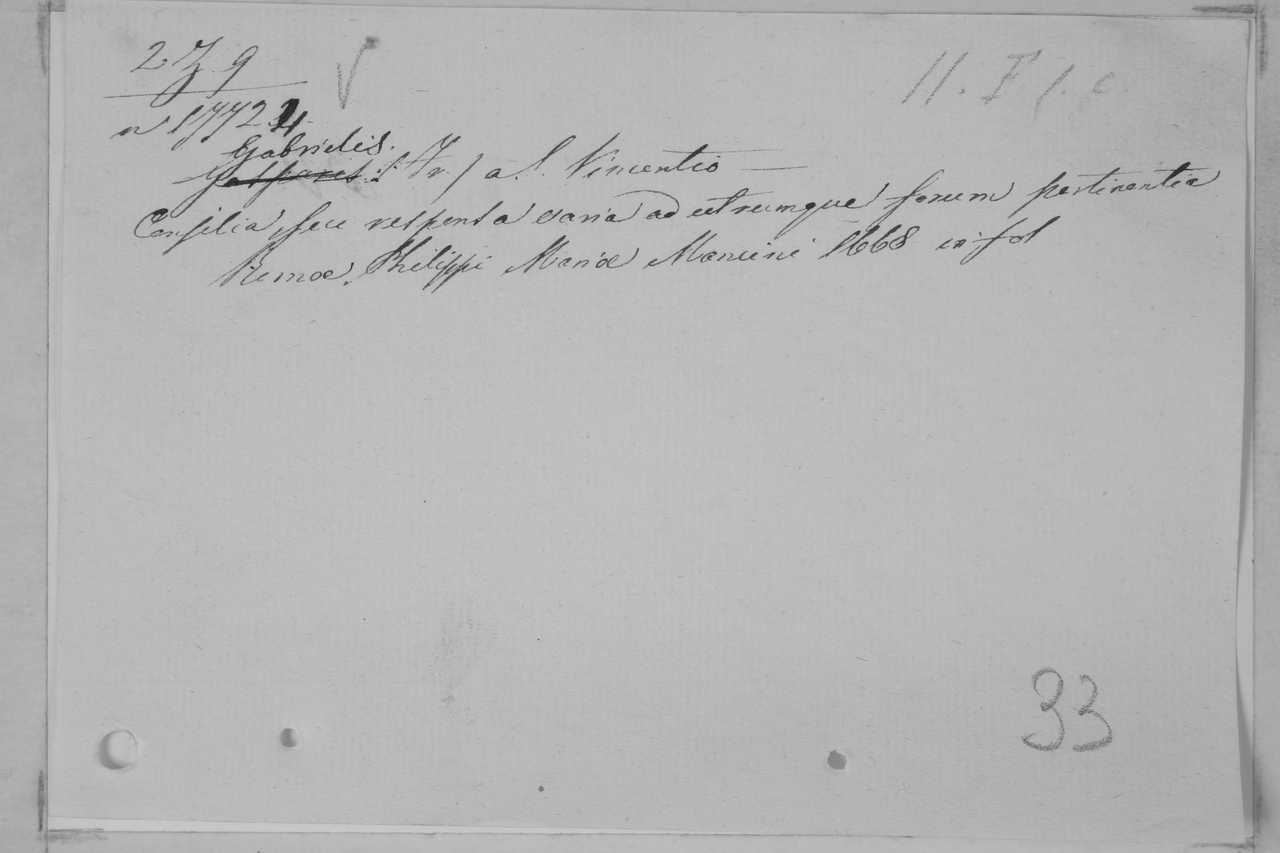 2 Z 9
11. F 1. c.
n 17724
Gabrielis.
Gasparis (Fr.) a S. Vincentio —
Consilia, seu responsa varia ad utrumque forum pertinentia
Romæ. Philippi Mariæ Mancini 1668 in fol
33